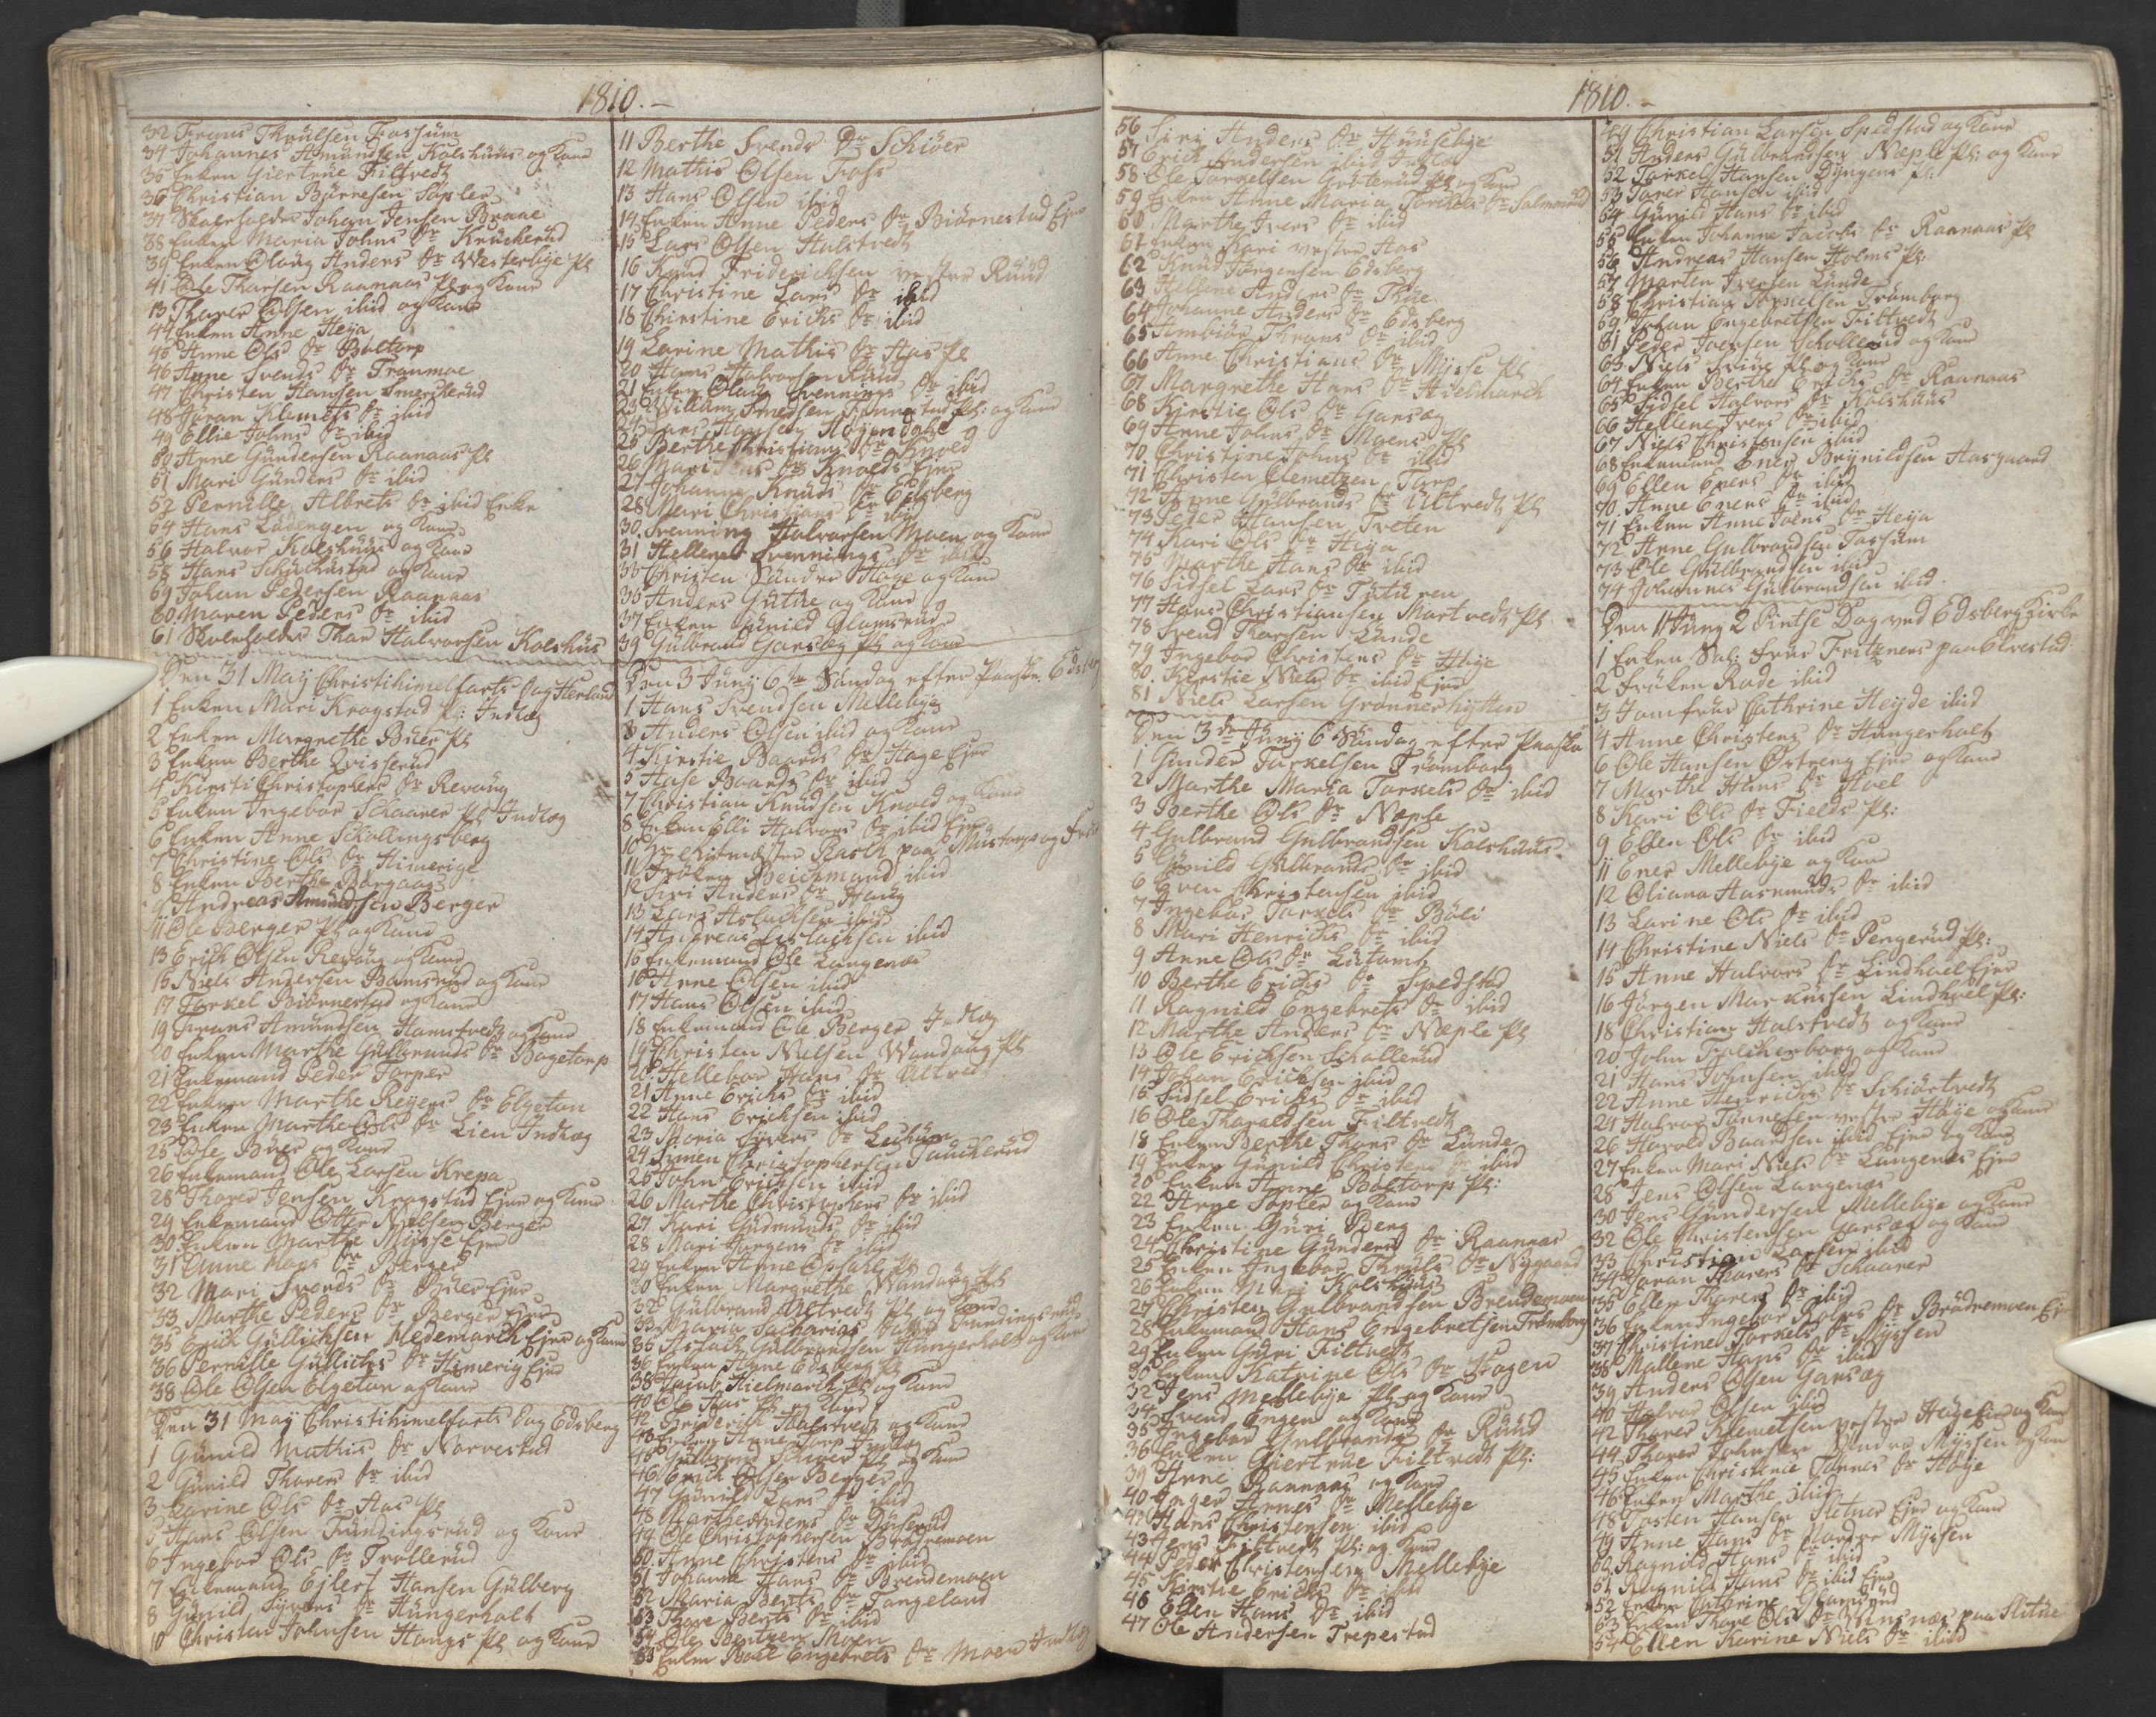 1810.
32 Frans Thrulsen Fossum
34 Johannes Amundsen Kolshuus og Kone
35 Enken Giertrue Filtvedt
36 Christian Börresen Sopler
37 Skoleholder Johan Jensen Braae
38 Enken Maria Johns Dr Kruckerud
39 Enken Olaug Anders Dr Westerbye Pl
41 Ole Tharsen Raanaas Pl og Kone
13 Thorer Olsen ibid og Kone
44 Enken Anne Heya
45 Anne Ols Dr Boltorp
46 Anne Svends Dr Tranmoe
47 Christen Hansen Smerckerud
48 Jöran Klemets Dr ibid
49 Ellie Johns Dr ibid
50 Anne Gundersen Raanaas Pl
51 Mari Gunders Dr ibid
52 Pernille Albrets Dr ibid Enke
54 Hans Ladengen og Kone
56 Halvor Kolshuus og Kone
58 Hans Schulerud og Kone
59 Johan Pedersen Raanaas
60 Maren Peders Dr ibid
61 Skoleholder Thor Halvorsen Kolshus
Den 31 May Christihimelfarts Dag Herland
1 Enken Mari Kragstad Pl: Indlæg
2 Enken Margrethe Buer Pl
3 Enken Berthe
4 Kirsti Christophers Dr Revaug
5 Enken Ingebor Schaarer Pl Indlæg
6 Enken Anne Schollingsberg
7 Christine Ols Dr Himerige
8 Enken Berthe Borgaas
9 Andreas Amundsen Berger
11 Ole Berger Pl og Kone
13 Erich Olsen Revaug og Kone
15 Niels Andersen Bamsrud og Kone
17 Torkel Biörnerstad og Kone
19 Frans Amundsen Hamstvedt og Kone
20 Enken Marthe Gulbrands Dr Bogetorp
21 Enkemand Peder Torper
22 Enken Marthe Reyers Dr Elgetun
23 Enken Marthe Ols Dr Lien Indlæg
25 Ole Buer og Kone
26 Enkemand Ole Larsen Krepa
28 Thorer Jensen Kragstad Ejer og Kone
29 Enkemand Otter Nielsen Berger
30 Enken Marthe Mysse Ejer
31 Anne Dr Berger
32 Mari Svends Dr Buer Ejer
33 Marthe Peders Dr Berger Ejer
35 Erich Gullichsen Hedemarch Ejer og Kone
36 Pernille Gullichs Dr Himerig Ejer
38 Ole Olsen Elgetun og Kone
Den 31 May Christihimelfarts Dag Edsberg
1 Gunild Mathis Dr Norvestad
2 Gunild Thorers Dr ibid
3 Karine Ols Dr Aas Pl
5 Hans Olsen Fundingsrud og Kone
6 Ingebor Ols Dr Trollerud
7 Enkemand Ejlert Hansen Gulberg
8 Gunild Syvers Dr Hungerholt
10 Christen Johnsen Haugs Pl og Kone
11 Berthe Svends Dr Schiöer
12 Mathis Olsen Foss
13 Hans Olsen ibid
14 Enken Anne Peders Dr Biörnestad Ejer
15 Lars Olsen Halstvedt
16 Knud Friderichsen vestre Ruud
17 Christine Lars Dr ibid
18 Chirstine Erichs Dr ibid
19 Larine Mathis Dr Aas Pl
20 Hans Halvorsen Ruud
21 Enken Olaug Svennings Dr ibid
23 Willum Smedsen Sonnestad Pl: og Kone
24 Lars Hansen Höyendahl
25 Berthe Christians Dr Knold
26 Mari Dr Knolds Ejer
27 Johanne Knuds Dr Edsberg
28 Mari Christians Dr ibid
30 Svenning Halvorsen Moen og Kone
31 Hellene Svennings Dr ibid
33 Christen Söndre Höye og Kone
35 Anders Guthe og Kone
37 Enken Gunild Glamsrud
39 Gulbrand Garseg Pl og Kone
Den 3 Juny 6te Söndag efter Paaske Edsberg
1 Hans Svendsen Mellebye
3 Anders Olsen ibid og Kone
4 Kirstie Baards Dr Hage Ejer
5 Aase Baards Dr ibid
7 Christian Knudsen Knold og Kone
8 Enken Elli Halvors Dr ibid Ejer
10 Hr Ritmester Rasch paa Mustorp og Frue
11 Fröken Beichmand ibid
12 Siri Anders Dr Haug
13 Lars Aslachsen ibid
14 Andreas Aslachsen ibid
15 Enkemand Ole Langenæs
16 Anne Olsen ibid
17 Hans Olsen ibid
18 Enkemand Ole Berger Indlæg
19 Christen Nielsen Wandaug Pl
20 Hellebor Hans Dr Ultvedt
21 Anne Erichs Dr ibid
22 Hans Erichsen ibid
23 Maria Syvers Dr Lechum
24 Simen Christophersen
25 John Erichsen ibid
26 Marthe Christophers Dr ibid
27 Kari Gudmunds Dr ibid
28 Mari Jörgens Dr ibid
29 Enken Anne Opsahl Pl
30 Enken Margrethe Wandaug Pl
32 Gulbrand Ultvedt Pl og Kone
33 Maria Sacharias Datter Fundingsrud
35 Aslach Gulbrandsen Hungerholt og Kone
36 Enken Anne Edsberg Pl
38 Jacob Hielmarch Pl og Kone
40 Ole Aas Pl og Kone
42 Friderich Halstvedt og Kone
43 Enken Anne Torp Indlæg
45 Gulbrand Schiöer Pl og Kone
46 Erich Olsen Berger
47 Gunild Lars Dr ibid
48 Marthe Anders Dr Duserud
49 Ole Christophersen Brödremoen
50 Anne Christens Dr ibid
51 Johanne Hans Dr Brendemoen
52 Maria Bents Dr Tangeland
53 Thore Bents Dr ibid
54 Ole Bentzen Moen
55 Enken Boel Engebrets Dr Moen Indlæg
1810.
56 Siri Anders Dr Huuselbye
57 Erich Andersen ibid
58 Ole Torkelsen Gröterud Pl og Kone
59 Enken Anne Maria Torkels Dr Salmonrud
60 Marthe Ivers Dr ibid
61 Enken Kari vestre Aas
62 Knud Jörgensen Edsberg
63 Hellene Anders Dr Thue
64 Johanne Anders Dr Edsberg
65 Simbiör Throns Dr ibid
66 Anne Christians Dr Mysse Pl
67 Margrethe Hans Dr Hielmarch
68 Kirstie Ols Dr Garseg
69 Anne Johns Dr Moens Pl
70 Christine Johns Dr ibid
71 Christen Clemetzen Torp
72 Anne Gulbrands Dr Ultvedt Pl
73 Peder Hansen Treten
74 Kari Ols Dr Heya
75 Marthe Hans Dr ibid
76 Sidsel Lars Dr Tuturen
77 Hans Christiansen Martvedt Pl
78 Svend Thorsen Lunde
79 Ingebor Christens Dr Høye
80 Kirstie Niels Dr ibid Ejer
81 Niels Larsen Grönnerhytten
Den 3de Juny 6 Söndag efter Paaske
1 Gunder Torkelsen Trömborg
2 Marthe Maria Torkels Dr ibid
3 Berthe Ols Dr Næple
4 Gulbrand Gulbrandsen Kolshuus
5 Gunild Gulbrands Dr ibid
6 Even Christensen ibid
7 Ingebor Torkels Dr Böli
8 Mari Henrichs Dr ibid
9 Anne Ols Dr Lutomt
10 Berthe Erichs Dr Spedstad
11 Ragnild Engebrets Dr ibid
12 Marthe Anders Dr Næple Pl
13 Ole Erichsen Schollerud
14 Johan Erichsen ibid
15 Sidsel Erichs Dr ibid
16 Ole Tharaldsen Filtvedt
18 Enken Berthe Thors Dr Lunde
19 Enken Gunild Christens Dr ibid
20 Enken Anne Boltorp Pl:
22 Arne Sopler og Kone
23 Enken Guri Berg
24 Christine Gunders Dr Raanaas
25 Enken Ingebor Thruls Dr Nygaard
26 Enken Mari Kolshuus
27 Christen Gulbrandsen Brendemoen
28 Enkemand Hans Engebretsen Trömborg
29 Enken Guri Filtvedt
30 Enken Katrine Ols Dr Hogen
32 Jens Mellebye Pl og Kone
34 Svend Engen og Kone
35 Ingebor Gulbrands Dr Ruud
36 Enken Giertrue Filtvedt Pl:
39 Arne Raanaas og Kone
40 Inger Arnes Dr Mellebye
41 Hans Christensen ibid
43 Jens Filtvedt Pl: og Kone
44 Peder Christensen Mellebye
45 Kirstie Erichs Dr ibid
46 Ellen Hans Dr ibid
47 Ole Andersen Trepestad
49 Christian Larsen Spedstad og Kone
51 Anders Gulbrandsen Næple Pl: og Kone
52 Torkel Hansen Dyngens Pl:
53 Torer Hansen ibid
54 Gunild Hans Dr ibid
55 Enken Johanne Jacobs Dr Raanaas Pl
56 Andreas Hansen Holms Pl:
57 Morten Iversen Lunde
58 Christian Torkelsen Trömborg
59 Johan Engebretsen Filtvedt
61 Peder Joensen Schollerud og Kone
63 Niels Pl og Kone
64 Enken Berthe Erichs Dr Raanaas
65 Sidsel Halvors Dr Kolshuus
66 Hellene Ivers Dr ibid
67 Niels Christensen ibid
68 Enkemand Ener Brynildsen Aasgaard
69 Ellen Eners Dr ibid
70 Anne Eners Dr ibid
71 Enken Anne Joens Dr Heya
72 Arne Gulbrandsen Fossum
73 Ole Gulbrandsen ibid
74 Johannes Gulbrandsen ibid
Den 11 Juny 2 Pintse Dag ved Edsberg Kirke
1 Enken Sal: Frue Fritzners paa Elvestad
2 Fröken Rode ibid
3 Jomfrue Cathrine Heyde ibid
4 Anne Christens Dr Hungerholt
6 Ole Hansen Östreng Ejer og Kone
7 Marthe Hans Dr Hoel
8 Kari Ols Dr Fields Pl:
9 Ellen Ols Dr ibid
11 Ener Mellebye og Kone
12 Oliana Aasmunds Dr ibid
13 Larine Ols Dr ibid
14 Christine Niels Dr Pengerud Pl:
15 Anne Halvors Dr Lindhoel Ejer
16 Jörgen Markussen Lindhoel Pl:
18 Christian Halstvedt og Kone
20 John Trolcherborg og Kone
21 Hans Johnsen ibid
22 Anne Henrichs Dr Schiörtvedt
24 Halvor Tönnesen vestre Höye og Kone
26 Harold Baardsen ibid Ejer og Kone
27 Enken Mari Niels Dr Langenæs Ejer
28 Jens Olsen Langenæs
30 Jens Gundersen Mellebye og Kone
32 Ole Christensen Garseg og Kone
33 Christian Larsen ibid
34 Joran Thorers Dr Schaarer
35 Ellen Thorers Dr ibid
36 Enken Ingebor Dr Brödremoen Ejer
37 Christine Torkels Dr Myssen
38 Mallene Hans Dr ibid
39 Anders Olsen Garseg
40 Halvor Olsen ibid
42 Thorer Klemetsen vestre Höye Ejer og Kone
44 Thorer Johnsen Söndre Myssen og Kone
45 Enken Christine Tönnes Dr Höye
46 Enken Marthe ibid
48 Tosten Hansen Sletner Ejer og Kone
49 Anne Hans Dr Nordre Myssen
50 Ragnild Hans Dr ibid
51 Ragnild Hans Dr ibid Ejer
52 Enken Cathrine Glamsrud
53 Enken Thore Ols Dr paa Slitue
54 Ellen Karine Niels Dr ibid